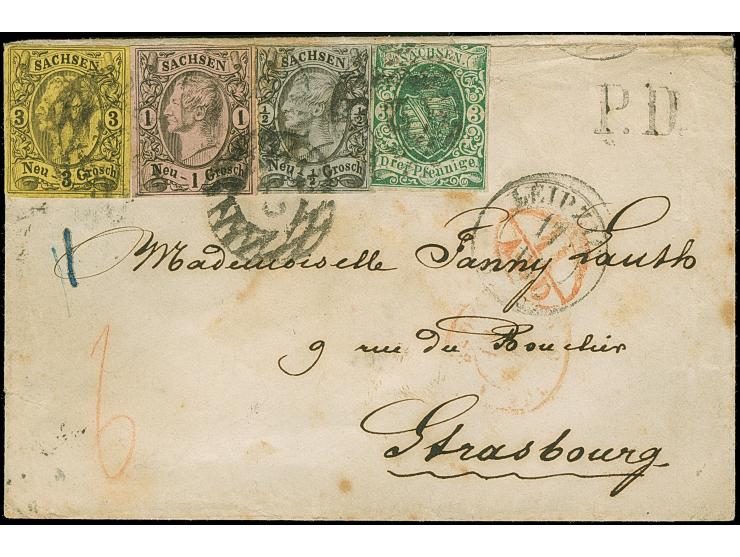 SACHSEN SACHSEN SACHSEN SACHSEN.
3 3 1 1 ½ ½ 3 3
Neu - 3 Grosch Neu - 1 Grosch Neu - ½ Grosch Drei Pfennige
P.D.
LEIPZ
17
Mademoiselle Fanny Lauth
9 rue du Boucher
Strasbourg
6